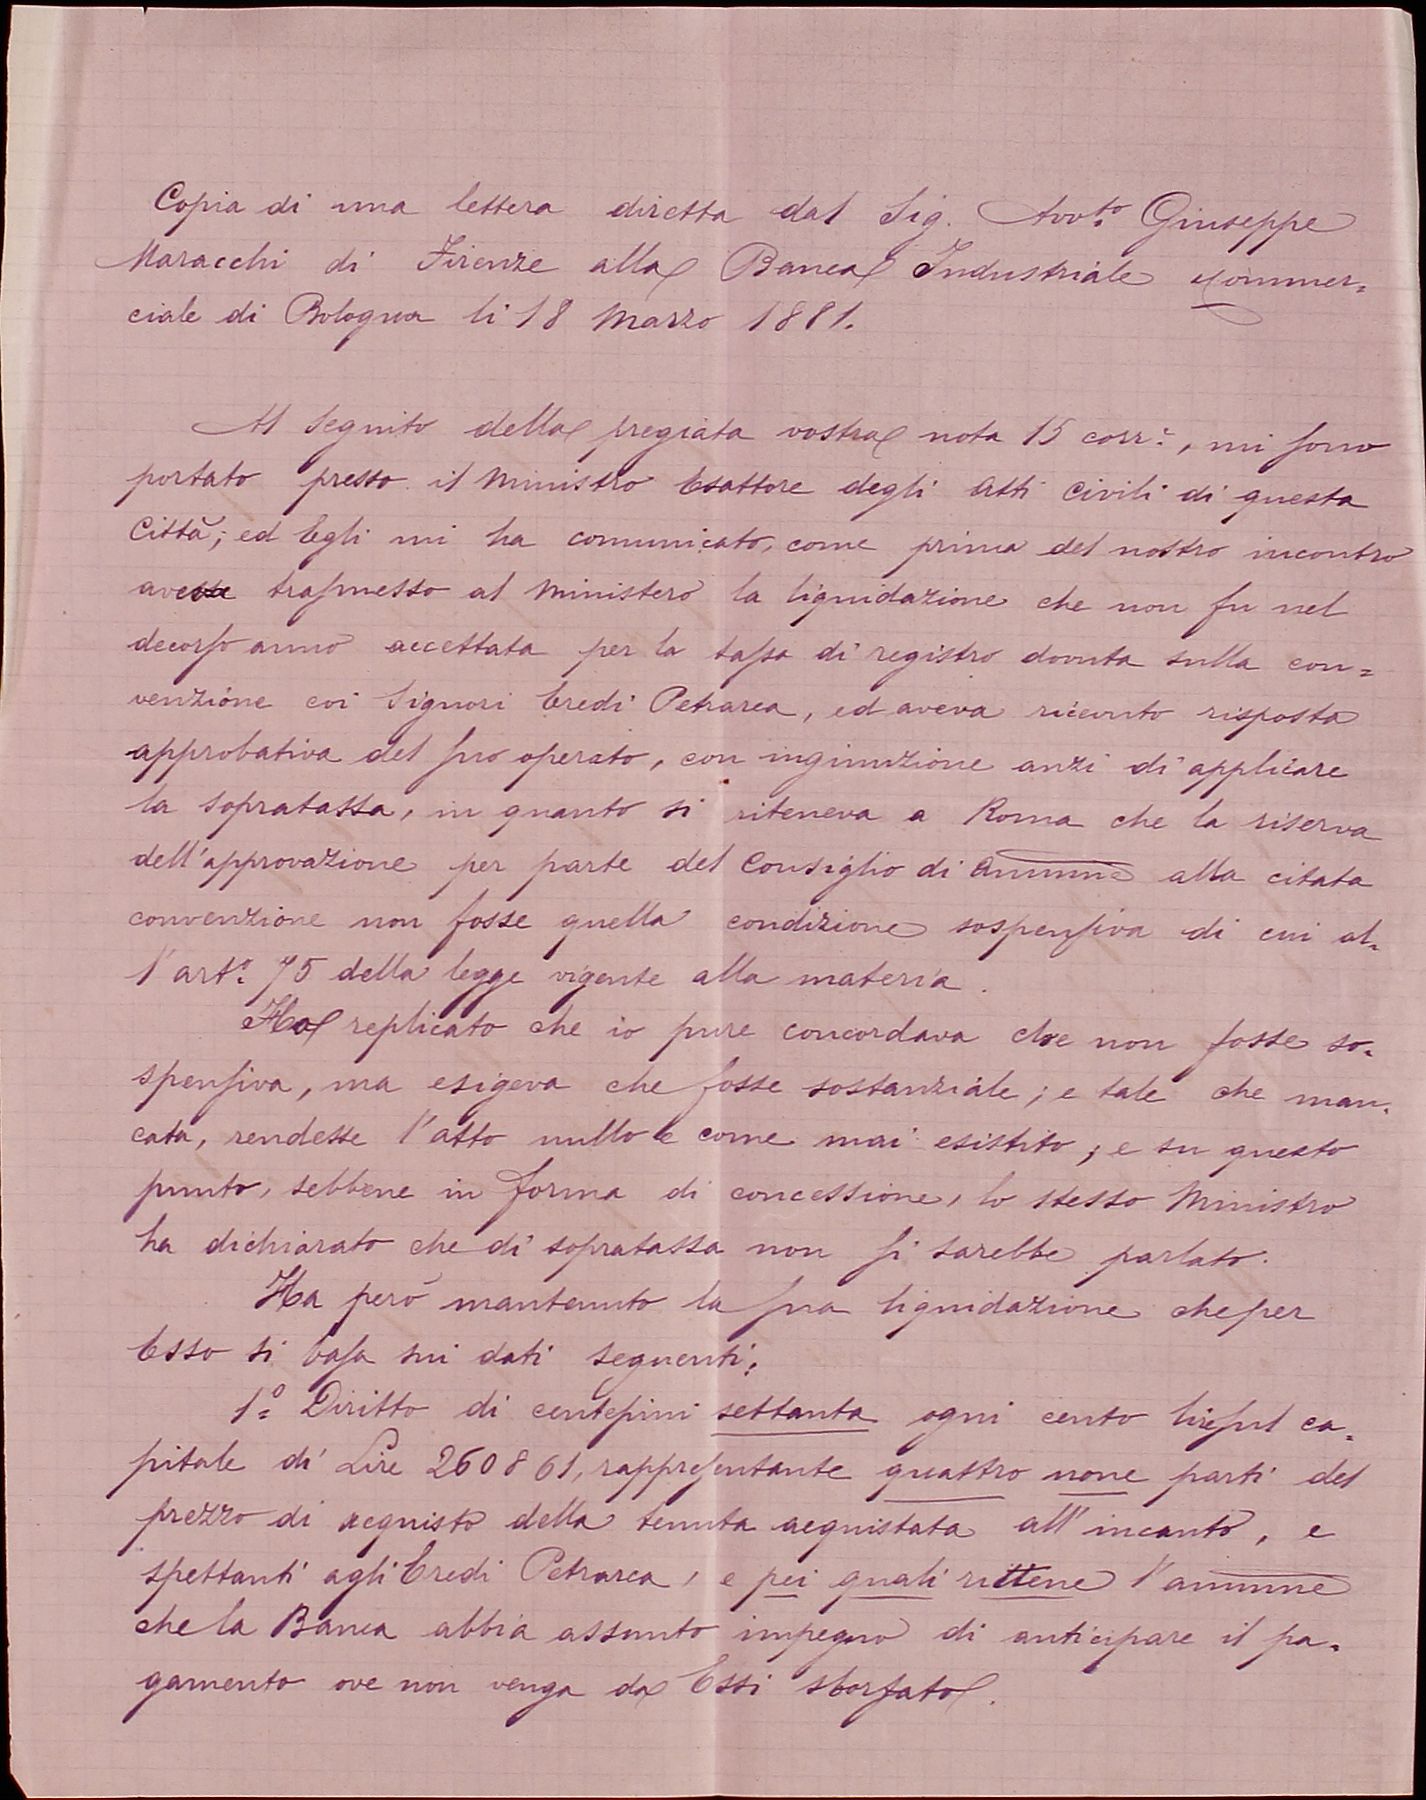 Copia di una lettera diretta dal Sig. Avvto Giuseppe
Maracchi di Firenze alla Banca Industriale e Commer=
ciale di Bologna li 18 Marzo 1881.
Al seguito della pregiata vostra nota 15 corr:, mi sono
portato presso il Ministro Esattore degli Atti Civili di questa
Città; ed Egli mi ha comunicato, come prima del nostro incontro
avesse trasmesso al Ministero la liquidazione che non fu nel
decorso anno accettata per la tassa di registro dovuta sulla con=
venzione coi Signori Eredi Petrarca, ed aveva ricevuto risposta
approbativa del suo operato, con ingiunzione anzi di applicare
la sopratassa, in quanto si riteneva a Roma che la riserva
dell'approvazione per parte del Consiglio di Ammne alla citata
convenzione non fosse quella condizione sospensiva di cui al=
l'arto. 75 della legge vigente alla materia.
Ho replicato che io pure concordava che non fosse so=
spensiva, ma esigeva che fosse sostanziale; e tale che man=
cata, rendesse l'atto nullo e come mai esistito; e su questo
punto, sebbene in forma di concessione, lo stesso Ministro
ha dichiarato che di sopratassa non si sarebbe parlato.
Ha però mantenuto la sua liquidazione che per
Esso si basa sui dati seguenti:
1º Diritto di centesimi settanta ogni cento lire sul ca=
pitale di Lire 260861, rappresentante quattro none parti del
prezzo di acquisto della tenuta acquistata all'incanto, e
spettanti agli Eredi Petrarca, e pei quali rittene l'ammne
che la Banca abbia assunto impegno di anticipare il pa=
gamento ove non venga da Essi sborsato.